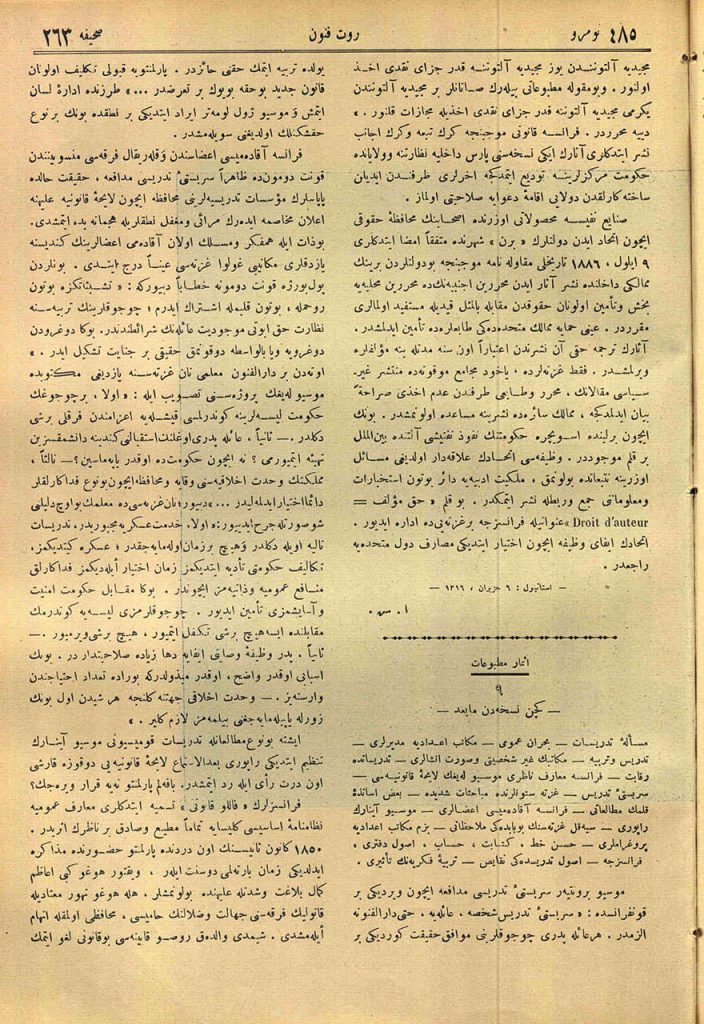 نومرو ٤٨٥
روت فنون
صحیفه ٢٦٣
مجیدیه آلتونندن یوز مجیدیه آلتوننه قدر جزای نقدی اخذ
اولنور . وبومقوله مطبوعاتی بیله‌رك صاتانلر بر مجیدیه آلتوندن
یكرمی مجیدیه آلتوننه قدر جزای نقدی اخذیله مجازات قلنور . »
دییه محرردر . فرانسه قانونی موجبنجه كرك تبعه وكرك اجانب
نشر ایتدكلری آثارك ایكی نسخه‌سنی پارس داخلیه نظارتنه وولایاتده
حكومت مركزلرینه تودیع ایتمدكجه اثرلری طرفندن ایدیلن
ساخته كارلقدن دولایی اقامهٔ دعوایه صلاحیتی اولماز .
صنایع نفیسه محصولاتی اوزرنده اصحابنك محافظهٔ حقوقی
ایچون اتحاد ایدن دولتلرك « برن » شهرنده متفقاً امضا ایتدكلری
٩ ایلول ، ١٨٨٦ تاریخلی مقاوله نامه موجبنجه بودولتلردن برینك
ممالكی داخلنده نشر آثار ایدن محررین اجنبیه‌نك‌ده محررین محلیه‌یه
بخش وتأمین اولونان حقوقدن مقابله بالمثل قیدیله مستفید اولمالری
مقرردر . عینی حمایه ممالك متحده‌ده‌كی طابعلره‌ده تأمین ایدلمشدر .
آثارك ترجمه حقی آن نشرندن اعتباراً اون سنه مدتله ینه مؤلفلره
ویرلمشدر . فقط غزته‌لرده ، یاخود مجامع موقوته‌ده منتشر غیر
سیاسی مقالاتك ، محرر وطابعی طرفندن عدم اخذی صراحةً
بیان ایدلمدكجه ، ممالك سائره‌ده نشرینه مساعده اولونمشدر . بونك
ایچون برلینده اسویچره حكومتنك نفوذ تفتیشی آلتنده بین‌الملل
بر قلم موجوددر . وظیفه‌سی اتحادك علاقه‌دار اولدیغی مسائل
اوزرینه تتبعاتده بولونمق ، ملكیت ادبیه‌یه دائر بوتون استخبارات
ومعلوماتی جمع وربطله نشر ایتمكدر . بو قلم « حق مؤلف =
Droit d'auteur » عنوانیله فرانسزجه برغزته‌یی‌ده اداره ایدیور .
اتحادك ایفای وظیفه ایچون اختیار ایتدیكی مصارف دول متحده‌یه
راجعدر .
— استانبول : ٦ حزیران ، ١٣١٦ —
ا . س .
اتمار مطبوعات
٩
— كچن نسخه‌دن مابعد —
مسألهٔ تدریسات — بحران عمومی — مكاتب اعدادیه مدیرلری —
تدریس وتربیه — مكاتبك غیر شخصیتی وصورت انشالری — تدریساتده
رقابت — فرانسه معارف ناظری موسیو له‌یغك لایحهٔ قانونیه‌سی —
سربستیٔ تدریس — غزته ستونلرنده مباحثات شدیده — بعض اساتذهٔ
قلمك مطالعاتی — فرانسه آقاده‌میسی اعضالری — موسیو آینارك
راپوری — سیه‌قل غزته‌سنك بوبابده‌كی ملاحظاتی — بزم مكاتب اعدادیه
پروغراملری — حسن خط . كتابت ، حساب ، اصول دفتری ،
فرانسزجه — اصول تدریسده‌كی نقایص — تربیهٔ فكریه‌نك تأثیری .
موسیو برونتیه‌ر سربستیٔ تدریسی مدافعه ایچون ویردیكی بر
قونفرانسده : « سربستیٔ تدریس شخصه ، عائله‌یه ، حتی دارالفنونه
الزمدر . هرعائله پدری چوجوقلرینی موافق حقیقت كوردیكی بر
یولده تربیه ایتمك حقنی حائزدر . پارلمنتویه قبولی تكلیف اولونان
قانون جدید بوحقه بویوك بر تعرضدر ... » طرزنده ادارهٔ لسان
ایتمش وموسیو ژول لومه‌تر ایراد ایتدیكی بر نطقده بونك بر نوع
حقشكنلك اولدیغنی سویله‌مشدر .
فرانسه آقاده‌میسی اعضاسندن وقله‌ریقال فرقه‌سی منسوبیتندن
قونت دومون‌ده ظاهراً سربستیٔ تدریسی مدافعه ، حقیقت حالده
پاپاسلرك مؤسسات تدریسیه‌لرینی محافظه ایچون لایحهٔ قانونیه علیهنه
اعلان مخاصمه ایده‌رك مرائی ومغفل نطقلریله هجماته بدء ایتمشدی.
بوذات ایله همفكر ومسلك اولان آقاده‌می اعضالرینك كندیسنه
یازدقلری مكاتیبی غولوا غزته‌سی عیناً درج ایتدی . بونلردن
پول‌بورژه قونت دومونه خطاباً دییوركه : « تشبثاتكزه بوتون
روحمله ، بوتون قلبمله اشتراك ایدرم ; چوجوقلرینك تربیه‌سنه
نظارت حق ابوتی موجودیت عائله‌نك شرائطندندر . بوكا دوغرودن
دوغرویه ویا بالواسطه دوقونمق حقیقی بر جنایت تشكیل ایدر . »
اوته‌دن بر دارالفنون معلمی تان غزته‌سنه یازدیغی مكتوبده
موسیو له‌یغك پروژه‌سنی تصویب ایله : « اولا ، برچوجوغك
حكومت لیسه‌لرینه كوندرلمسی قیشله‌یه اعزامندن فرقلی برشی
دكلدر . — ثانیاً ، عائله پدری اوغلنك استقبالنی كندینه دانشمقسزین
تهیئه ایتمیورمی ؟ نه ایچون حكومت‌ده اوقدر یاپه‌ماسین ؟ — ثالثاً ،
مملكتك وحدت اخلاقیه‌سنی وقایه ومحافظه ایچون بونوع فداكارلقلر
دائما اختیار ایدلمه‌لیدر ... » دییور; تان غزته‌سی‌ده معلمك بواوچ دلیلنی
شوصورتله جرح ایدییور : « اولا، خدمت عسكریه مجبوریدر، تدریسات
تالیه اویله دكلدر وهیچ بر زمان اوله‌مایه‌جقدر ; عسكره كیتدیكمز،
تكالیف حكومتی تأدیه ایتدیكمز زمان اختیار أیله‌دیكمز فداكارلق
منافع عمومیه وذاتیه‌مز ایچوندر . بوكا مقابل حكومت امنیت
وآسایشمزی تأمین ایدیور . چوجوقلرمزی لیسه‌یه كوندرمك
مقابلنده ایسه هیچ برشی تكفل ایتمیور ، هیچ برشی ویرمیور . —
ثانیاً . پدر وظیفهٔ وصایتی ایفایه دها زیاده صلاحیتدار در . بونك
اسبابی اوقدر واضح ، اوقدر مبذولدركه بوراده تعداد احتیاجندن
وارسته‌یز . — وحدت اخلاقی جهتنه كلنجه هر شیدن اول بونك
زورله یاپیله‌مایه‌جغنی بیلمه‌مز لازم كلیر . »
ایشته بونوع مطالعاتله تدریسات قومیسیونی موسیو آینارك
تنظیم ایتدیكی راپوری بعدالاستماع لایحهٔ قانونیه‌یی دوقوزه قارشی
اون درت رأی ایله رد ایتمشدر. باقه‌لم پارلمنتو نه‌یه قرار ویره‌جك؟
فرانسزلرك « فاللو قانونی » تسمیه ایتدكلری معارف عمومیه
نظامنامهٔ اساسیسی كلیسایه تماماً مطیع وصادق بر ناظرك اثریدر .
١٨٥٠ كانون ثانیسنك اون دردنده پارلمنتو حضورنده مذاكره
ایدلدیكی زمان بارته‌لمی دوسنت ایلر ، ویقتور هوغو كبی اعاظم
كمال بلاغت وشدتله علیهنده بولونمشلر . هله هوغو تهور معتادیله
قاتولیك فرقه‌سنی جهالت وضلالتك حامیسی ، محافظی اولمقله اتهام
أیله‌مشدی . شیمدی والده‌ق روصو قابینه‌سی بوقانونی لغو ایتمك